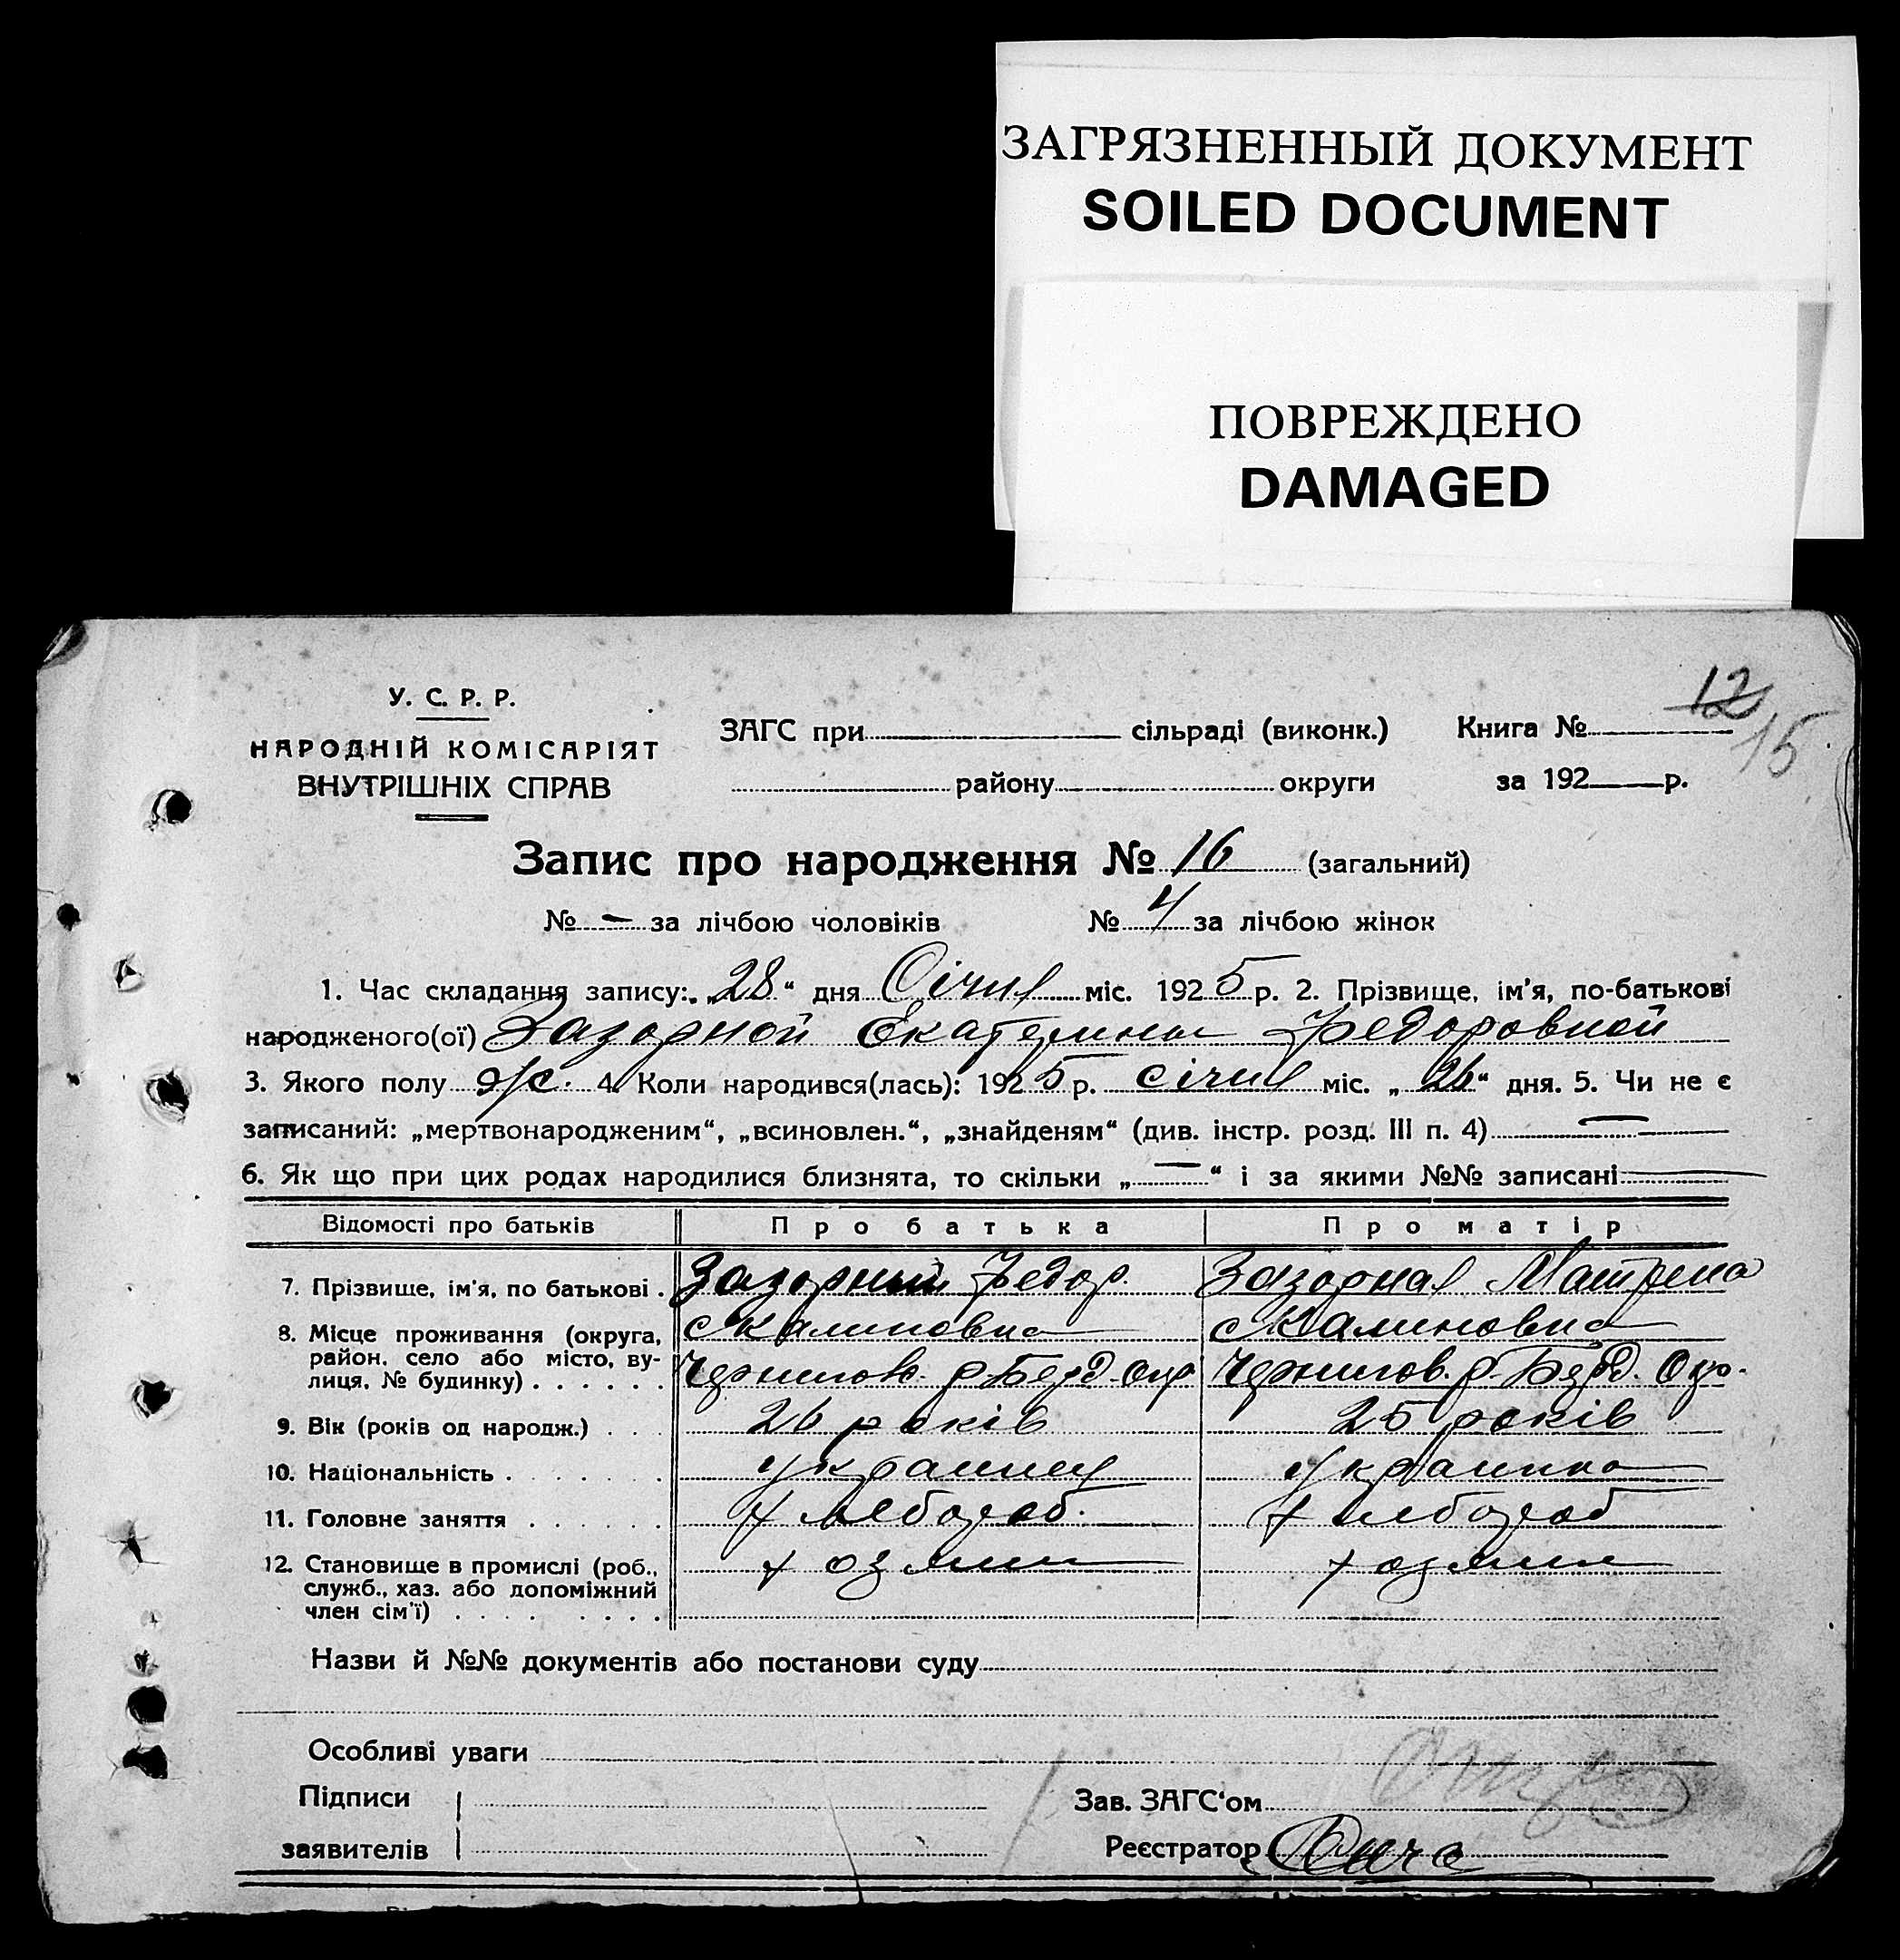 ЗАГРЯЗНЕННЫЙ ДОКУМЕНТ
SOILED DOCUMENT
ПОВРЕЖДЕНО
DAMAGED
12
15
У. С. Р. Р.
НАРОДНІЙ КОМІСАРІЯТ
ВНУТРІШНІХ СПРАВ
ЗАГС при сільраді (виконк.) Книга №
району округи за 192 р.
Запис про народження № 16 (загальний)
№ — за лічбою чоловіків № 4 за лічбою жінок
1. Час складання запису: „28“ дня Січня міс. 1925 р. 2. Прізвище, ім'я, по-батькові
народженого(ої) Зазорной Екатерины Федоровной
3. Якого полу 4. Коли народився(лась): 1925 р. січня міс. „26“ дня. 5. Чи не є
записаний: „мертвонародженим“, „всиновлен.“, „знайденям“ (див. інстр. розд. III п. 4) —
6. Як що при цих родах народилися близнята, то скільки „—“ і за якими №№ записані —
Відомості про батьків Про батька Про матір
7. Прізвище, ім'я, по батькові . Зазорный Федор. Зазорная Матрена
8. Місце проживання (округа, район, село або місто, вулиця, № будинку) . . . . . . с Калиновка с Калиновка
Чернигов. р. Берд. Окр Чернигов. р. Берд. Окр.
9. Вік (років од народж.) . . . 26 років 25 років
10. Національність . . . . . . . Украинец Украинка
11. Головне заняття . . . . . . Хлебороб. Хлебороб
12. Становище в промислі (роб., служб., хаз. або допоміжний член сім'ї) . . . . . . . .
Назви й №№ документів або постанови суду
Особливі уваги
Підписи
заявителів
Зав. ЗАГС‘ом
Реєстратор